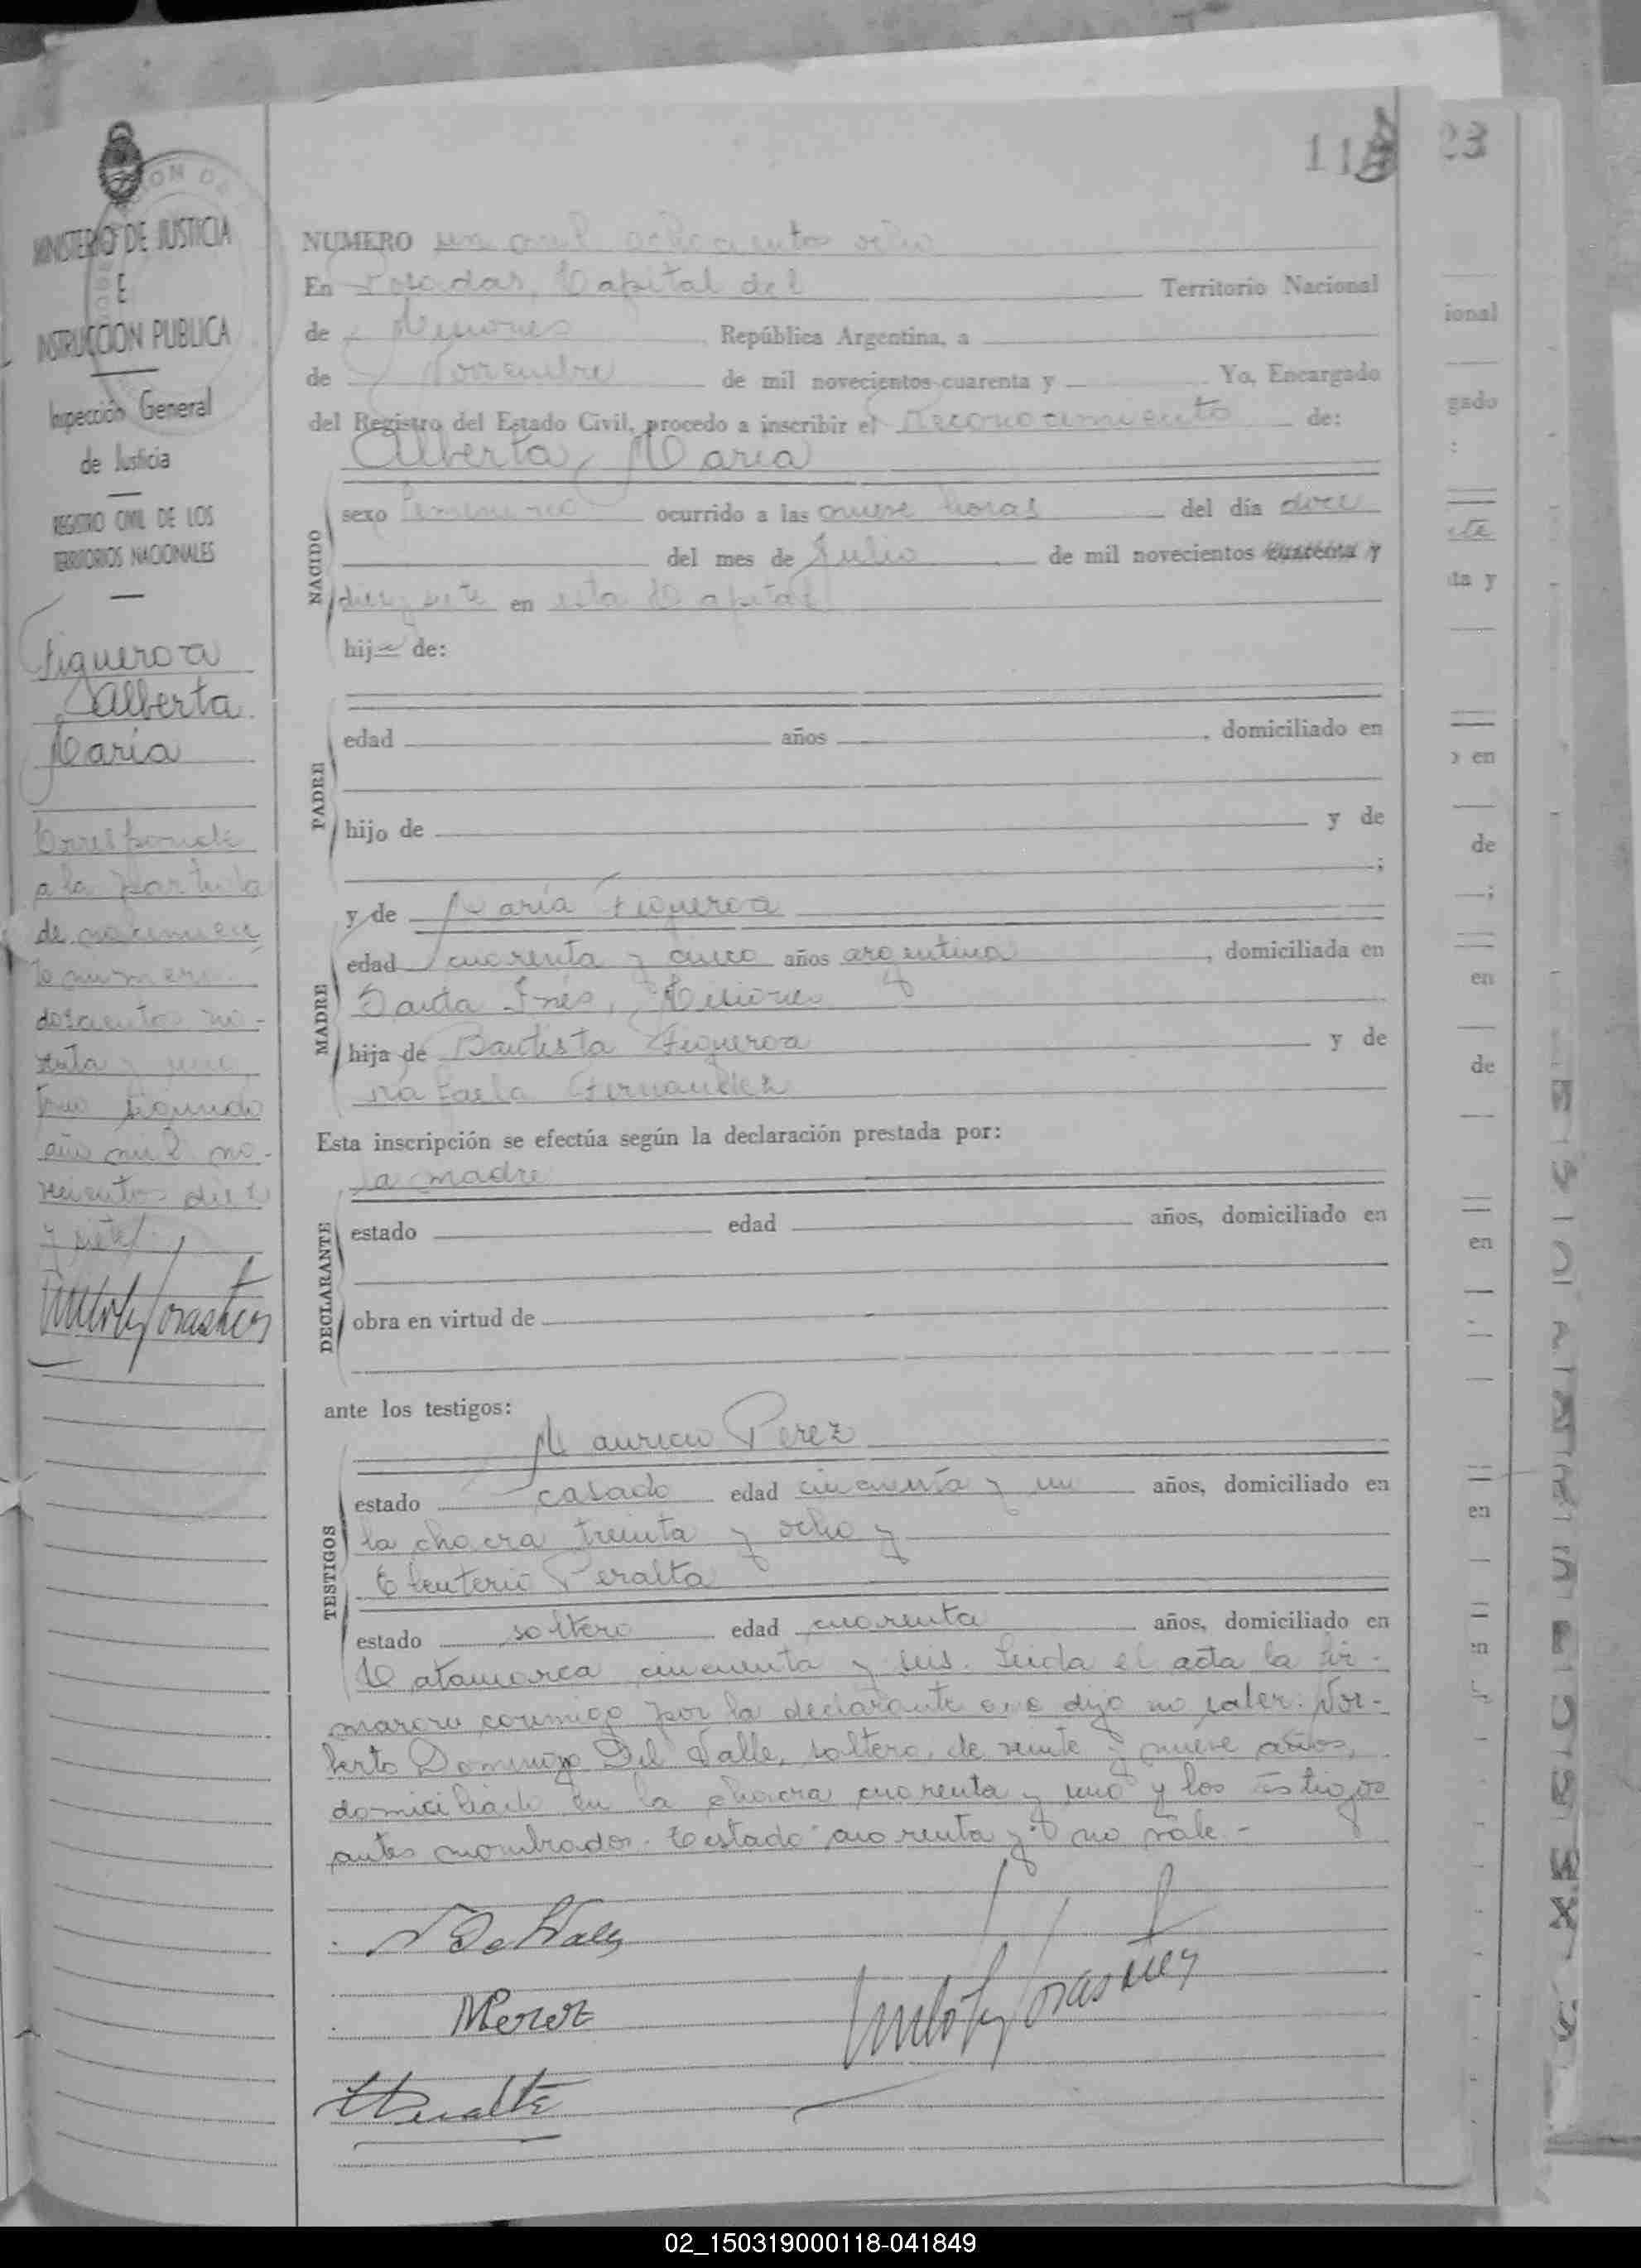 118
23
MINISTERIO DE JUSTICIA
E
INSTRUCCION PUBLICA
Inspección General
de Justicia
REGISTRO CIVIL DE LOS
TERRITORIOS NACIONALES
Figueroa
Alberta
Maria
Corresponde
a la partida
de nacimien
to numero
doscientos no-
venta y uno
Tomo segundo
año mil no-
vecientos diez
y siete.
NUMERO un mil ochocientos ocho
En Posadas, Capital del Territorio Nacional
de Misiones República Argentina, a
de Noviembre de mil novecientos cuarenta y Yo, Encargado
del Registro del Estado Civil, procedo a inscribir el Reconocimiento de:
Alberta, Maria
NACIDO
sexo femenino ocurrido a las nueve horas del día doce
del mes de Julio de mil novecientos cuarenta y
diez y siete en esta Capital
hija de:
PADRE
edad años , domiciliado en
hijo de y de
;
MADRE
y de Maria Figueroa
edad cuarenta y cinco años argentina , domiciliada en
Santa Inés, Misiones
hija de Bautista Figueroa y de
Rafaela Fernandez
Esta inscripción se efectúa según la declaración prestada por:
la madre
DECLARANTE
estado edad años, domiciliado en
obra en virtud de
ante los testigos:
TESTIGOS
Mauricio Perez
estado casado edad cincuenta y un años, domiciliado en
la chacra treinta y ocho y
Eleuterio Peralta
estado soltero edad cuarenta años, domiciliado en
Catamarca cincuenta y seis. Leida el acta la fir-
maron conmigo por la declarante que dijo no saber: Nor-
berto Domingo Del Valle, soltero, de veinte y nueve años,
domiciliado en la chacra cuarenta y uno y los testigos
antes nombrados. Testado: cuarenta y: no vale-
N Del Valle
MPerez
EPeralta
ional
gado
:
ta y
en
de
;
en
de
en
en
02_150319000118-041849